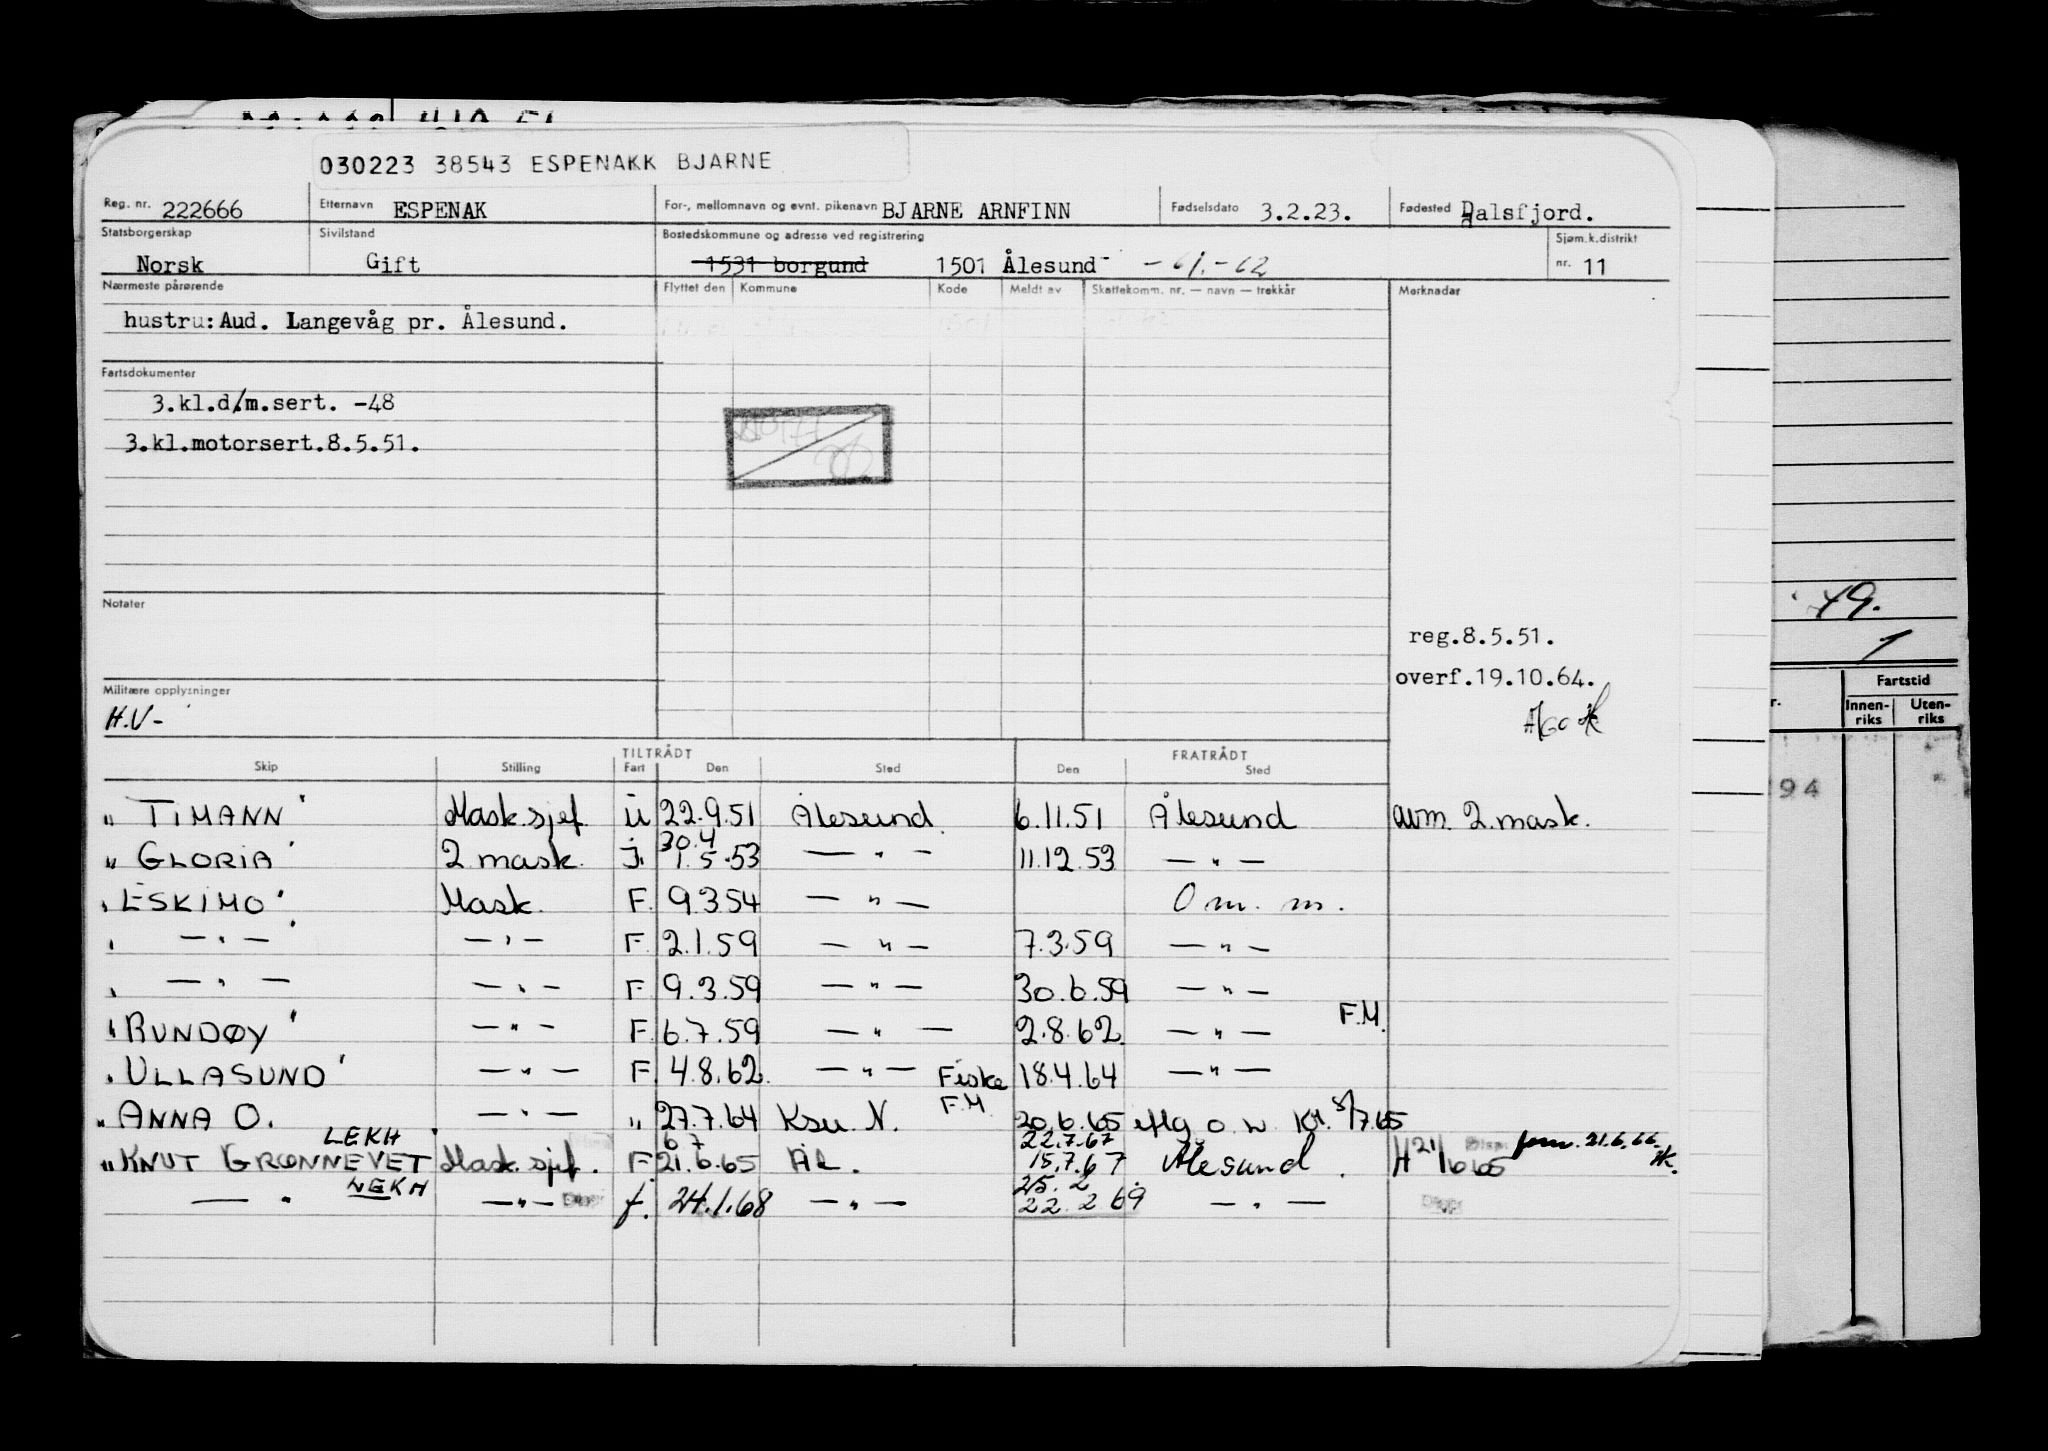 030223 38543 ESPENAKK BJARNE
Reg. nr. 222666 Etternavn ESPENAK For-, mellomnavn og evnt. pikenavn BJARNE ARNFINN Fødselsdato 3.2.23. Fødested Dalsfjord.
Statsborgerskap Sivilstand Bostedskommune og adresse ved registrering Sjøm.k.distrikt
Norsk Gift 1531 borgund 1501 Ålesund - 61.-62 nr. 11
Nærmeste pårørende Flyttet den Kommune Kode Meldt av Skattekomm. nr. — navn — trekkår Merknader
hustru: Aud. Langevåg pr. Ålesund.
Fartsdokumenter
3.kl.d/m.sert. -48
3.kl.motorsert.8.5.51.
Notater
49.
reg.8.5.51.
overf.19.10.64.
Militære opplysninger
H.V-
r. Fartstid
Innen-riks Uten-riks
TILTRÅDT FRATRÅDT
Skip Stilling Fart Den Sted Den Sted
94
" TIMANN" Mask.sjef. U 22.9.51 Ålesund. 6.11.51 Ålesund avm. 2.mask.
30.4
" GLORIA" 2 mask. j. 1.5.53 — " — 11.12.53 — " —
" ESKIMO" Mask. F. 9.3.54 — " — O m. m.
" — " — " — " — F. 2.1.59 — " — 7.3.59 — " —
" — " — — " — F 9.3.59 — " — 30.6.59 — " —
" RUNDØY" — " — F. 6.7.59 — " — 2.8.62 — " — F.M.
" ULLASUND" — " — F. 4.8.62. — " — Fiske 18.4.64 — " —
F.M.
" ANNA O. — " — " 27.7.64 Ksu. N. 20.6.65 o. 5/7.65
LEKH 6 7 22.7.67
" KNUT GRØNNEVET Mask.sjef. F 21.6.65 Ål. 15.7.67 Ålesund. H 21/6 65 21.6.66
LEKH 25. 2
— " — " — f. 24.1.68 — " — 22. 2 69 — " —